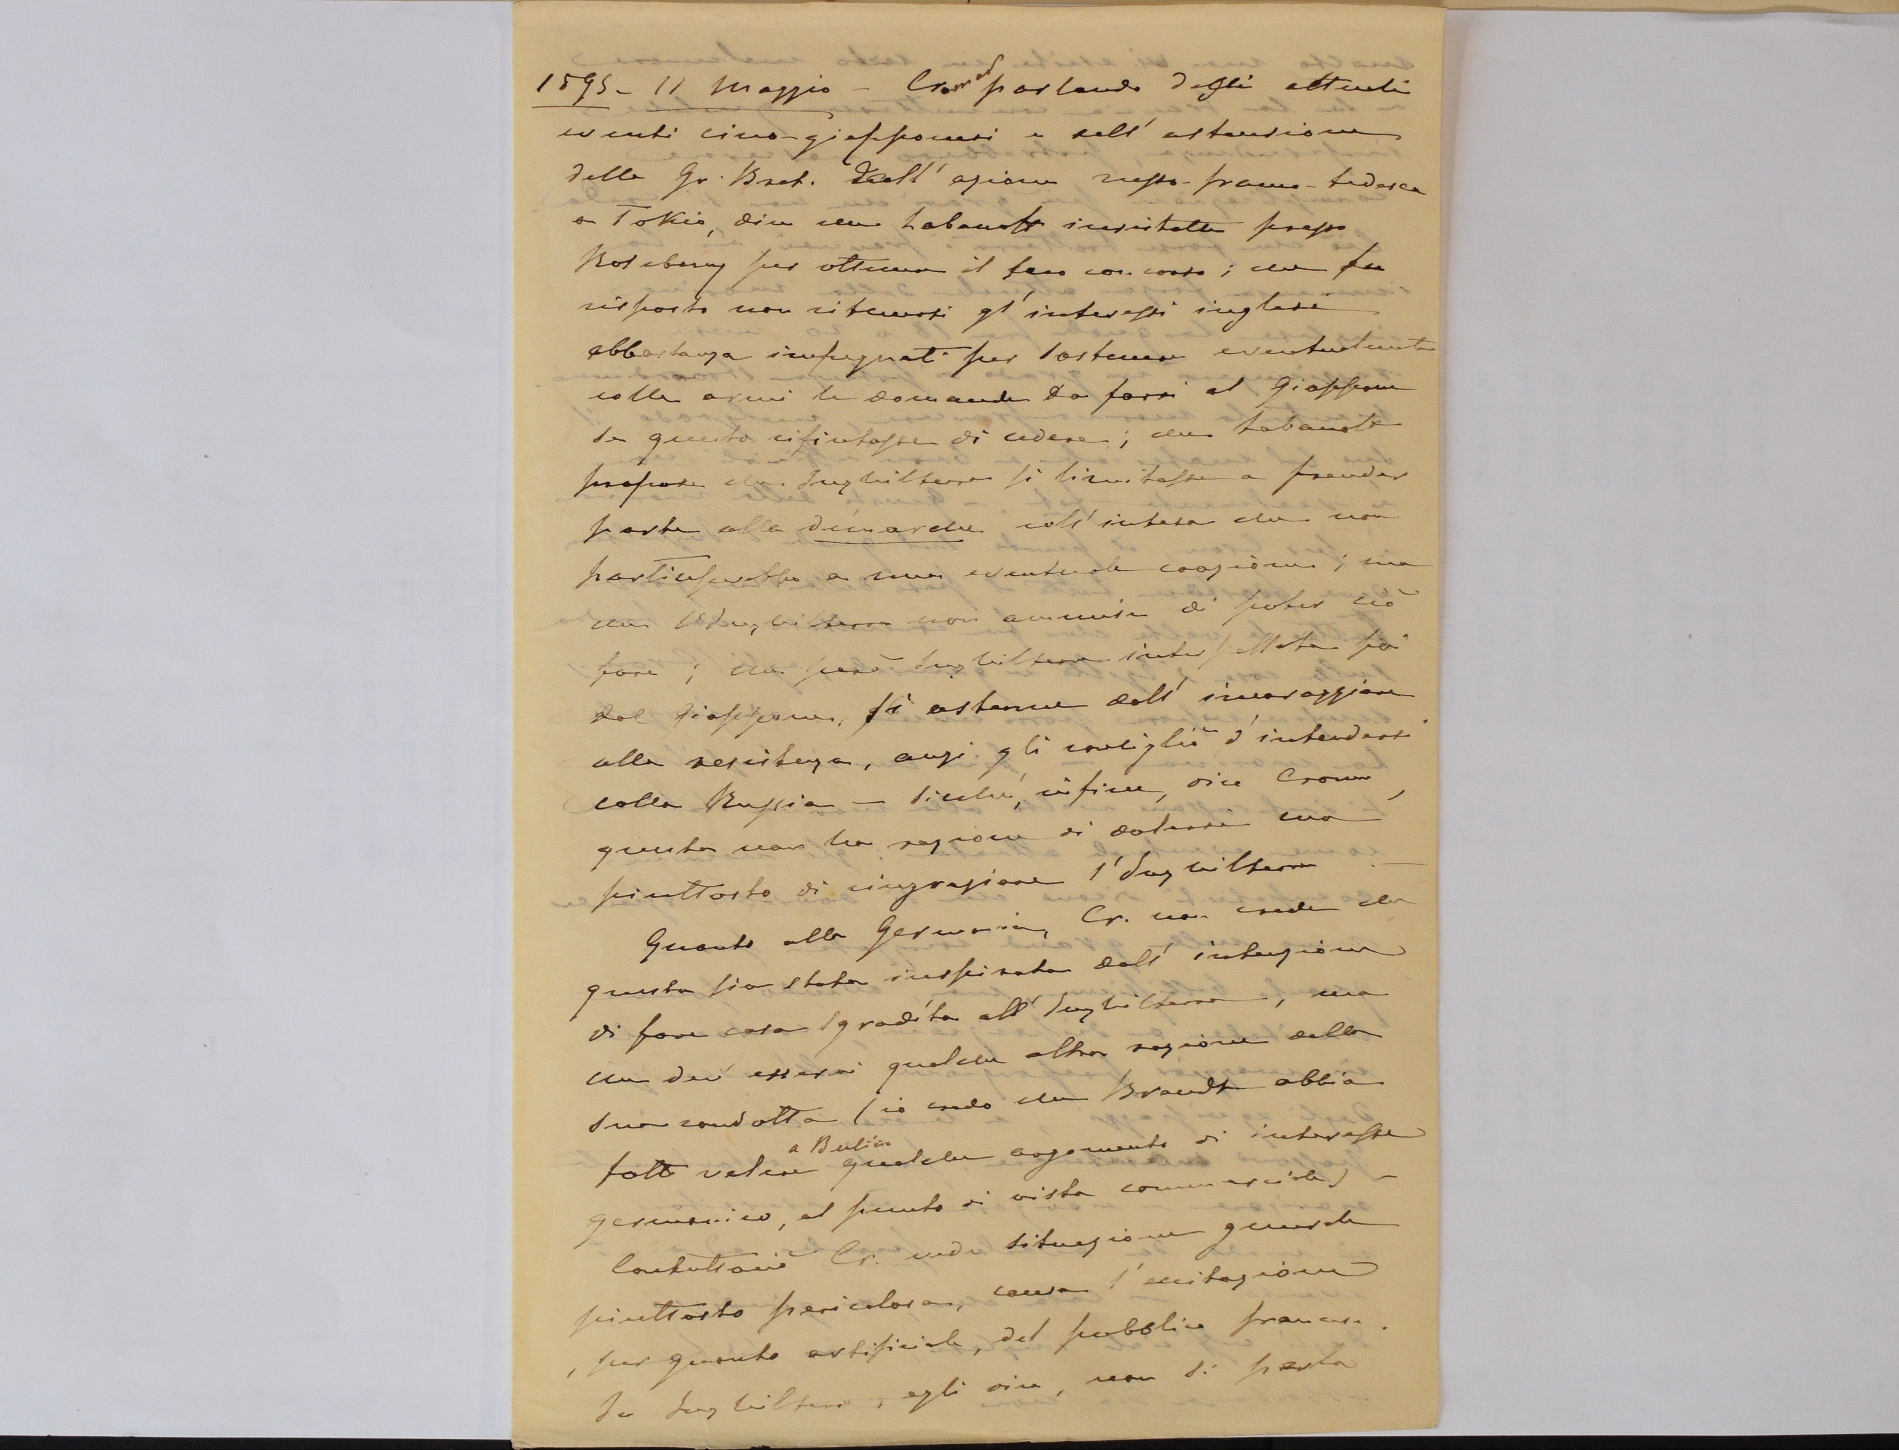 1895 - 11 Maggio - Cromer parlando degli attuali
eventi cino-giapponesi e dell'astensione
della Gr. Bret. dall'azione russo-franco-tedesca
a Tokio, dice che Lobanoff insistette presso
Rosebery per ottenere il suo concorso; che fu
risposto non ritenersi gl'interessi inglesi
abbastanza impegnati per sostenere eventualmente
colle armi le domande da farsi al Giappone
se questo rifiutasse di cedere; che Lobanoff
propose che Inghilterra si limitasse a prender
parte alla démarche coll'intesa che non
parteciperebbe a una eventuale coazione; ma
che l'Inghilterra non ammise di poter ciò
fare; che però Inghilterra interpellata poi
dal Giappone, si astenne dall'incoraggiare
alla resistenza, anzi gli consigliò d'intendersi
colla Russia - Sicché, infine, dice Cromer,
questa non ha ragione di dolersi ma
piuttosto di ringraziare l'Inghilterra. -
Quanto alla Germania, Cr. non crede che
questa sia stata inspirata dall'intenzione
di fare cosa sgradita all'Inghilterra, ma
che dev'esservi qualche altra ragione della
sua condotta (io credo che Brandt abbia
fatto valere a Berlino qualche argomento di interesse
germanico, al punto di vista commerciale) -
Contuttociò Cr. vede situazione generale
piuttosto pericolosa, causa l'eccitazione
, per quanto artificiale, del pubblico francese.
In Inghilterra, egli dice, non si presta